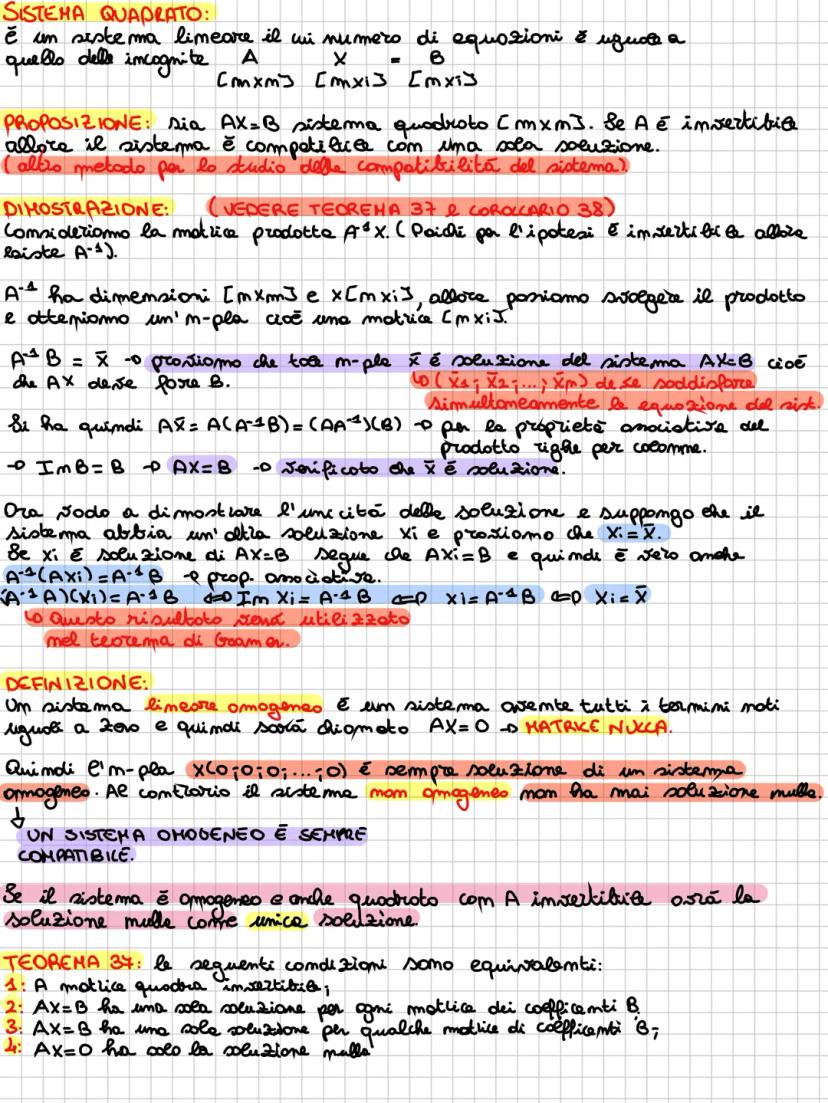 SISTEMA QUADRATO:
è un sistema lineare il cui numero di equazioni è uguale a
quello delle incognite A X = B
[mxm] [mx1] [mx1]
PROPOSIZIONE: sia AX=B sistema quadrato [mxm]. Se A è invertibile
allora il sistema è compatibile con una sola soluzione.
(altro metodo per lo studio della compatibilità del sistema).
DIMOSTRAZIONE: (VEDERE TEOREMA 37 e COROLLARIO 38)
Consideriamo la matrice prodotto A⁻¹X. (Poiché per l'ipotesi è invertibile allora
esiste A⁻¹).
A⁻¹ ha dimensioni [mxm] e x[mx1], allora possiamo svolgere il prodotto
e otteniamo un'n-pla cioè una matrice [mx1].
A⁻¹B = x̄ → proviamo che tale n-pla x̄ è soluzione del sistema AX=B cioè
che AX deve fare B. ↳ (x̄1; x̄2; ...; x̄m) deve soddisfare
simultaneamente le equazione del sist.
Si ha quindi Ax̄ = A(A⁻¹B) = (AA⁻¹)(B) → per la proprietà associativa del
prodotto righe per colonne.
→ ImB=B → AX=B → verificato che x̄ è soluzione.
Ora vado a dimostrare l'unicità della soluzione e suppongo che il
sistema abbia un'altra soluzione Xi e proviamo che Xi = x̄.
Se xi è soluzione di AX=B segue che AXi=B e quindi è vero anche
A⁻¹(AXi) = A⁻¹B → prop. associativa.
(A⁻¹A)(Xi) = A⁻¹B ⇔ Im Xi = A⁻¹B ⇔ xi = A⁻¹B ⇔ Xi = x̄
↳ Questo risultato verrà utilizzato
nel teorema di Cramer.
DEFINIZIONE:
Un sistema lineare omogeneo è un sistema avente tutti i termini noti
uguali a zero e quindi sarà chiamato AX=0 → MATRICE NULLA.
Quindi l'n-pla X(0;0;0;...;0) è sempre soluzione di un sistema
omogeneo. Al contrario il sistema non omogeneo non ha mai soluzione nulla.
↓
UN SISTEMA OMOGENEO È SEMPRE
COMPATIBILE.
Se il sistema è omogeneo e anche quadrato con A invertibile avrà la
soluzione nulla come unica soluzione.
TEOREMA 37: le seguenti condizioni sono equivalenti:
1: A matrice quadra invertibile;
2: AX=B ha una sola soluzione per ogni matrice dei coefficenti B.
3: AX=B ha una sola soluzione per qualche matrice di coefficenti B;
4: AX=0 ha solo la soluzione nulla